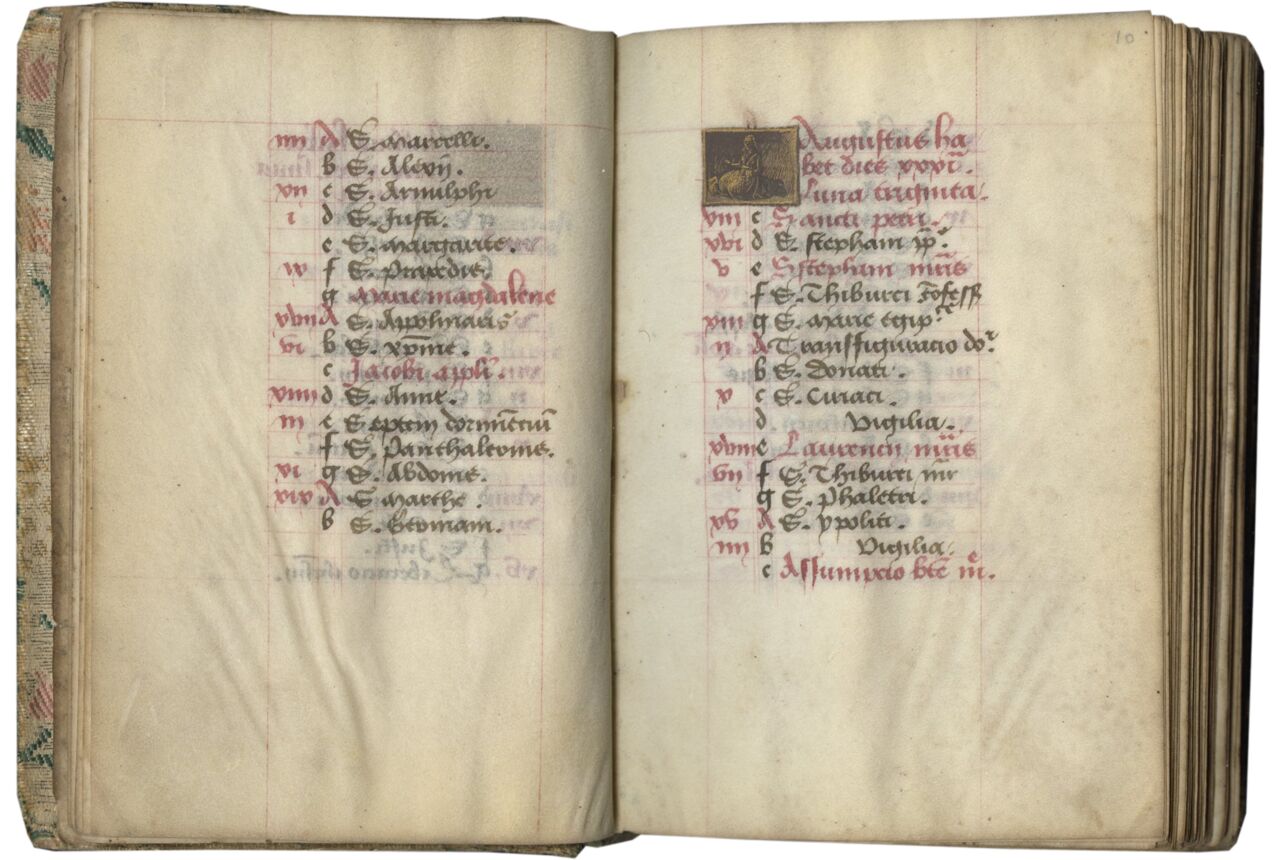 iiii A S. Marcelli.
b S. Alexii.
vii c S. Arnulphi
i d S. Justi.
e S. Margarite.
iv f S. Praxedis.
g Marie magdalene
xvii A S. Appolinaris
vi b S. xpine.
c Jacobi apli.
xiiii d S. Anne.
iii e Septem dormenciu
f S. Panthaleonis.
xi g S. Abdonis.
xix A S. Marthe.
b S. Germani.
10
Augustus ha
bet dies xxxi.
Luna triginta.
viii c Sancti petri.
xvi d S. stephani pp.
v e S. stephani mris
f S. Thiburci confess
xiii g S. Marie egip.
ii A Transffiguracio do.
b S. Donati.
x c S. Ciriaci.
d Vigilia.
xviii e Laurencii mris
vii f S. Thiburci mr
g S. Phaletri.
xv A S. ypoliti.
iiii b Vigilia.
c Assumpcio bte m.